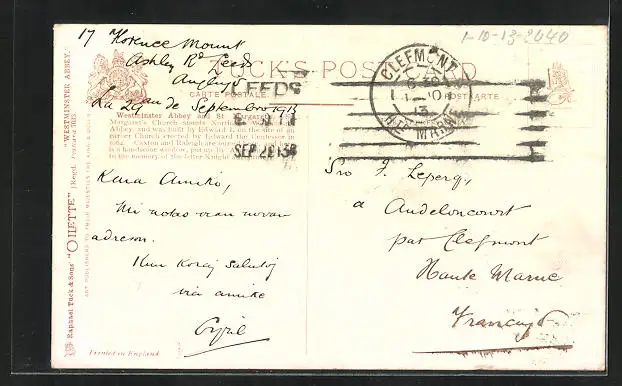 17 Florence Mount
Ashley Rd Leeds
Anglujo
La 29an de Septembro 1913
TUCK'S POST CARD
CARTE POSTALE
POSTKARTE
LEEDS
SEP 29 13
CLEFMONT
HTE MARNE
1-10-13
Westminster Abbey and St Margaret's
Margaret's Church stands North
Abbey, and was built by Edward I. on the site of an
earlier Church erected by Edward the Confessor in
1064. Caxton and Raleigh are
in a handsome window, put up by
to the memory of the latter Knight
Kara Amiko,
Mi notas vian novan
adreson.
Kun Koraj Salutoj
via amike
Cyril
Sro J. Leperq,
a Audeloncourt
par Clefmont
Haute Marne
Francujo
"WESTMINSTER ABBEY."
Raphael Tuck & Sons' "OILETTE"
ART PUBLISHERS TO THEIR MAJESTIES THE KING & QUEEN
Printed in England